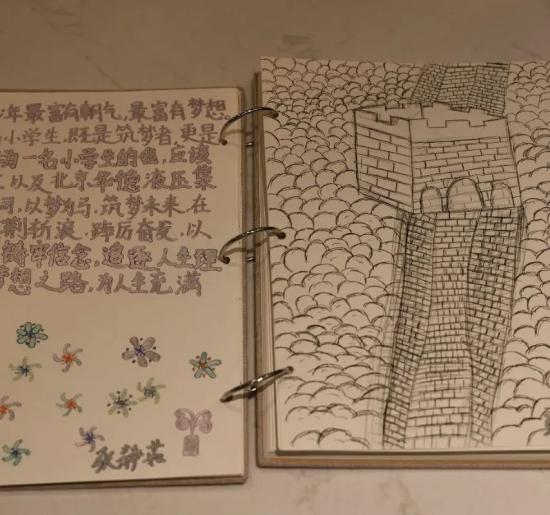 少年最富有朝气,最富有梦想
小学生,既是筑梦者,更是
为一名小学生的他,应该
以及北京华德液压集
司,以梦为马,筑梦未来,在
荆斩浪,踔厉奋发,以
铸牢信念,追逐人生理
梦想之路,为人生充满
张静芸